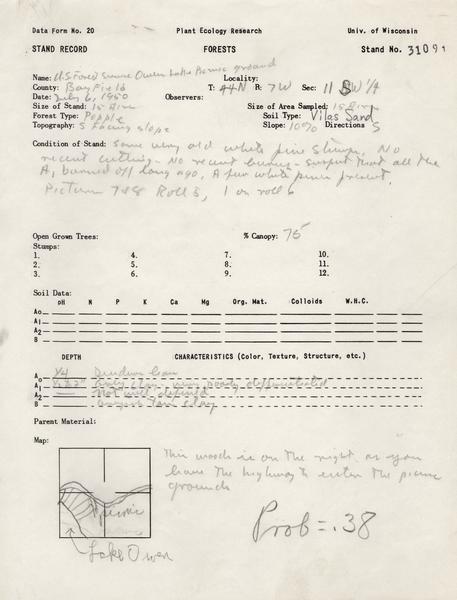 Data Form No. 20 Plant Ecology Research Univ. of Wisconsin
STAND RECORD FORESTS Stand No. 31091
Name: U.S. Forest Service Owen Lake Picnic ground Locality:
County: Bayfield T: 44N R: 7W Sec: 11 SW 1/4
Date: July 6, 1950 Observers:
Size of Stand: 15 Acres Size of Area Sampled: 15 Acres
Forest Type: Popple Soil Type: Vilas Sand
Topography: S facing slope Slope: 10% Direction: S
Condition of Stand: Some very old white pine stumps. No
recent cutting - No recent burns - suspect that all the
A, burned off long ago, A few white pines present,
Picture 7&8 Roll 5, 1 on roll 6
Open Grown Trees: % Canopy: 75
Stumps:
1. 4. 7. 10.
2. 5. 8. 11.
3. 6. 9. 12.
Soil Data:
pH N P K Ca Mg Org. Mat. Colloids W.H.C.
Ao
A1
A2
B
DEPTH CHARACTERISTICS (Color, Texture, Structure, etc.)
Ao 1/4
A1 very poorly differentiated
A2 Not well defined
B
Parent Material:
Map:
This woods is on the right as you
leave the highway to enter the picnic
grounds
picnic
Prob = .38
Lake Owen